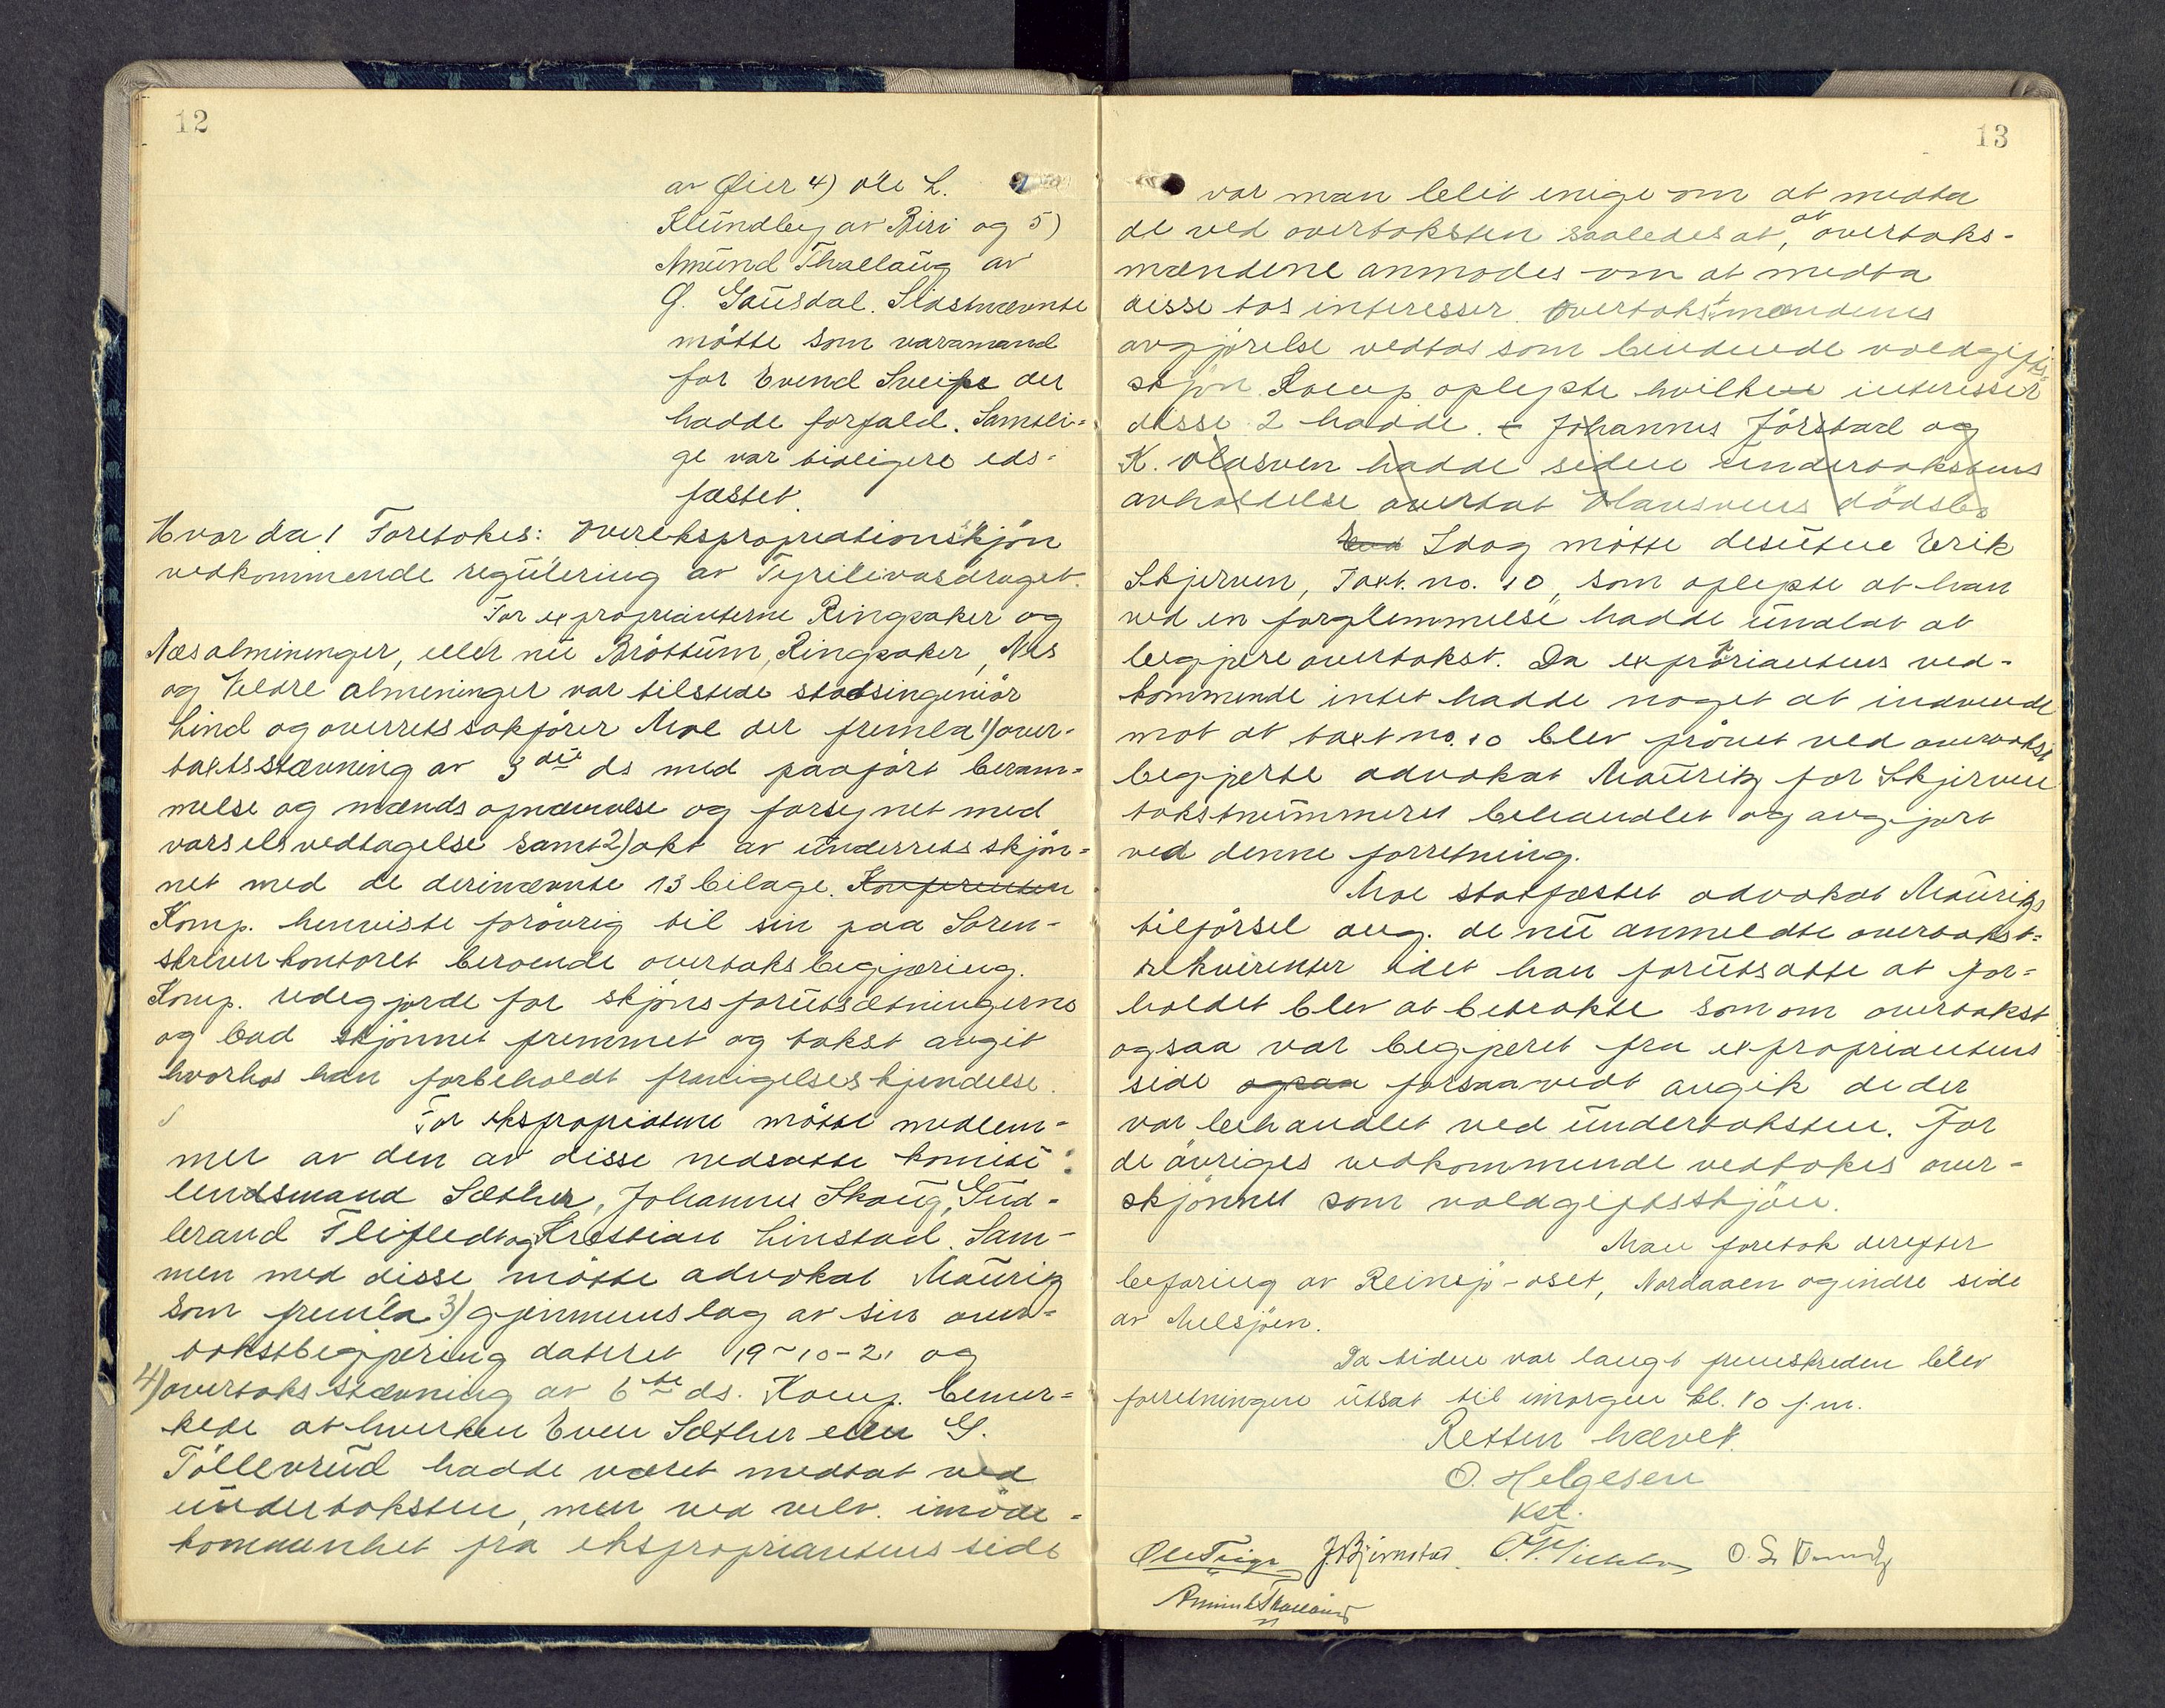 12
av Øier 4) Ole L.
Klundby av Biri og 5)
Amund Thallaug av
Ø. Gausdal. Sidstnævnte
møtte som varamand
for Evend Sveipe der
hadde forfald. Samtli-
ge var tidligere eds-
fæstet.
Hvor da! Foretokes: Overekspropriationsskjøn
vedkommende regulering av Tyrilivasdraget.
For expropriânterne Ringsaker og
Næs almininger, eller nu Brøttum, Ringsaker, Nes
og Veldre almeninger var tilstede stadsingeniør
Lind og overretssakfører Moe der fremla 1) over-
takstsstævning av 3die ds med paaført beram-
melse og mænds opnævnelse og forsynet med
varselsvedtagelse samt 2) akt av underretsskjøn-
net med de derinævnte 13 bilage. Konferenten
Komp. henviste forøvrig til sin paa Soren-
skriverkontoret beroende overtaksbegjæring.
Komp. redegjorde for skjønsforutsætningerne
og bad skjønnet fremmet og takst avgit
hvorhos han forbeholdt fravigelseskjendelse.
For ekspropriatene møtte medlem-
mer av den av disse nedsatte komité:
lendsmand Sæther, Johannes Skaug, Gud-
brand Fliflet og Kristian Linstad. Sam-
men med disse møtte advokat Mauritz
som fremla 3) gjenmenslag av sin over-
takstbegjæring dateret 19-10-21 og
4) overtaksstævning av 6te ds. Komp. bemer-
kede at hverken Even Sæther eller G.
Tøllevrud hadde været medtat ved
undertaksten, men ved velv. imøde-
kommenhet fra ekspropriantens side
13
var man blit enige om at medta
de ved overtaksten saaledes at, at overtaks-
mændene anmodes om at medta
disse tos interesser. Overtakstmændenes
avgjørelse vedtas som bindende voldgifts-
skjøn. Komp oplyste hvilken interesser
disse 2 hadde. Johannes Jørstad og
K. Olasven hadde siden undertakstens
avholdelse overtat Olasvens dødsbo
Idag møtte desuten Erik
Skjerven, Taxt. no. 10, som oplyste at han
ved en forglemmelse hadde undlat at
begjære overtakst. Da expropriantens ved-
kommende intet hadde noget at indvende
mot at taxt no. 10 blev prøvet ved overtakst
begjærte advokat Mauritz for Skjerven
takstnummeret behandlet og avgjort
ved denne forretning.
Moe statfæstet advokat Mauritz
tilførsel ang. de nu anmeldte overtakst-
rekvirenter idet han forutsatte at for-
holdet blev at betrakte som om overtakst
ogsaa var begjæret fra expropriantens
side ogsaa forsaavidt angik de der
var behandlet ved undertaksten. For
de øvriges vedkommende vedtokes over-
skjønnet som voldgiftsskjøn.
Man foretok derefter
befaring av Reinsjø-oset, Nordaaen og indre side
av Melsjøen.
Da tiden var langt fremskreden blev
forretningen utsat til imorgen kl. 10 f.m.
Retten hævet.
O. Helgesen
kst.